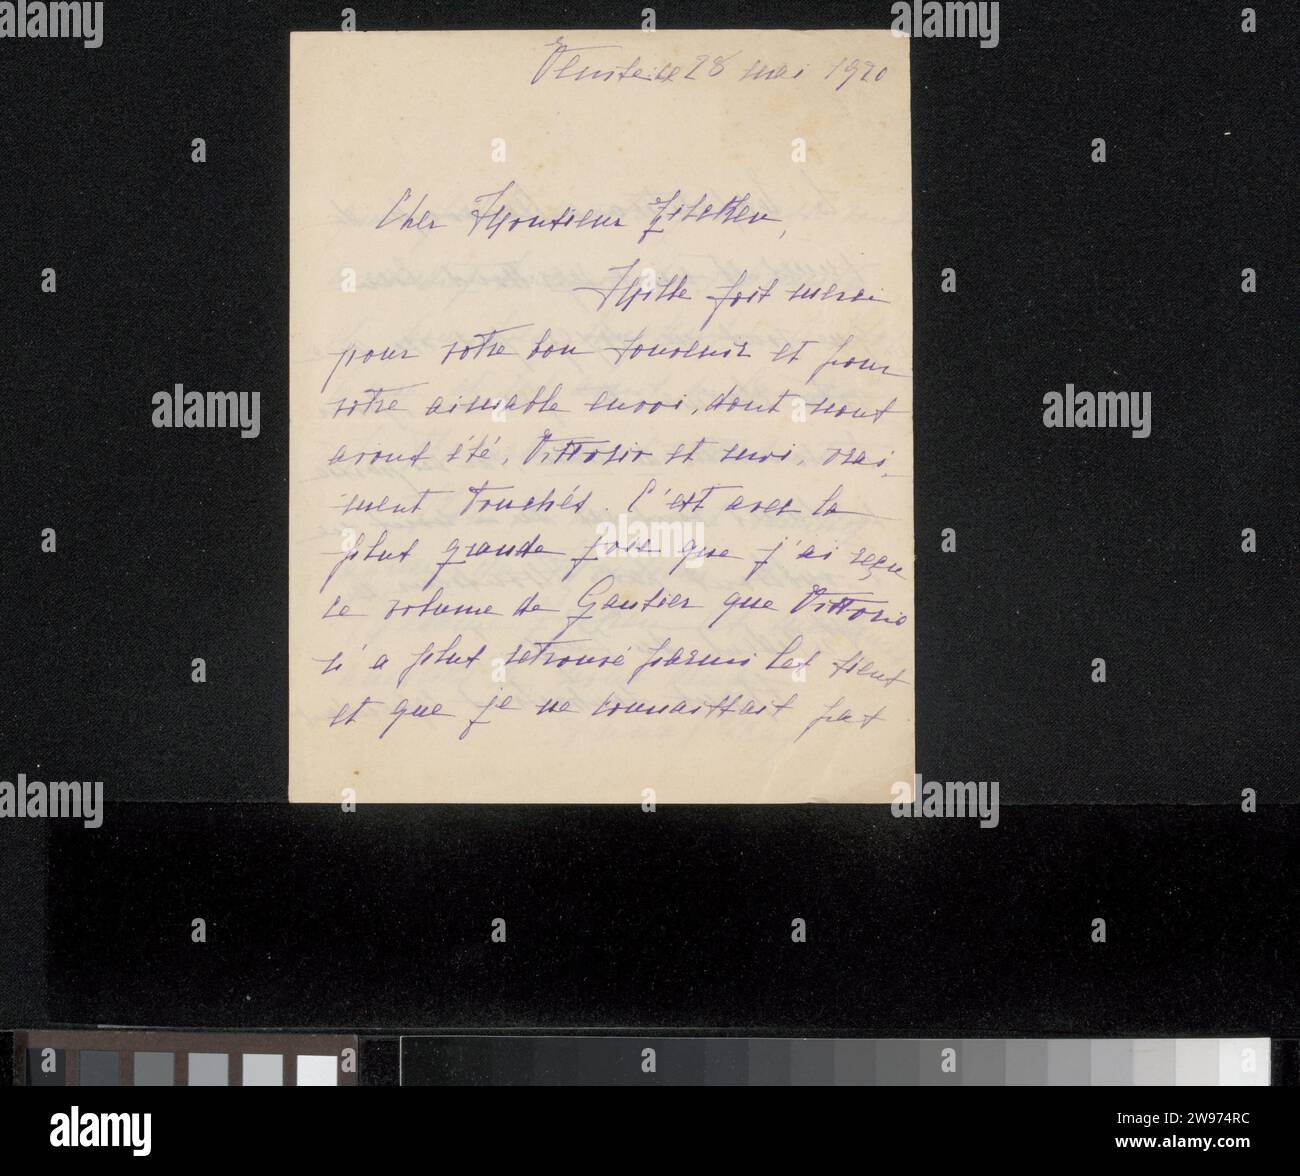 28 mai 1920
Cher Monsieur Zilcken,
Mille fois merci
pour votre bon souvenir et pour
votre aimable envoi, dont nous
avons été, Vittorio et moi, vrai-
ment touchés. C'est avec la
plus grande joie que j'ai reçu
ce volume de Gautier que Vittorio
n'a plus retrouvé parmi les siens
et que je ne connaissais pas
alamy
Image ID: 2W974RC
www.alamy.com